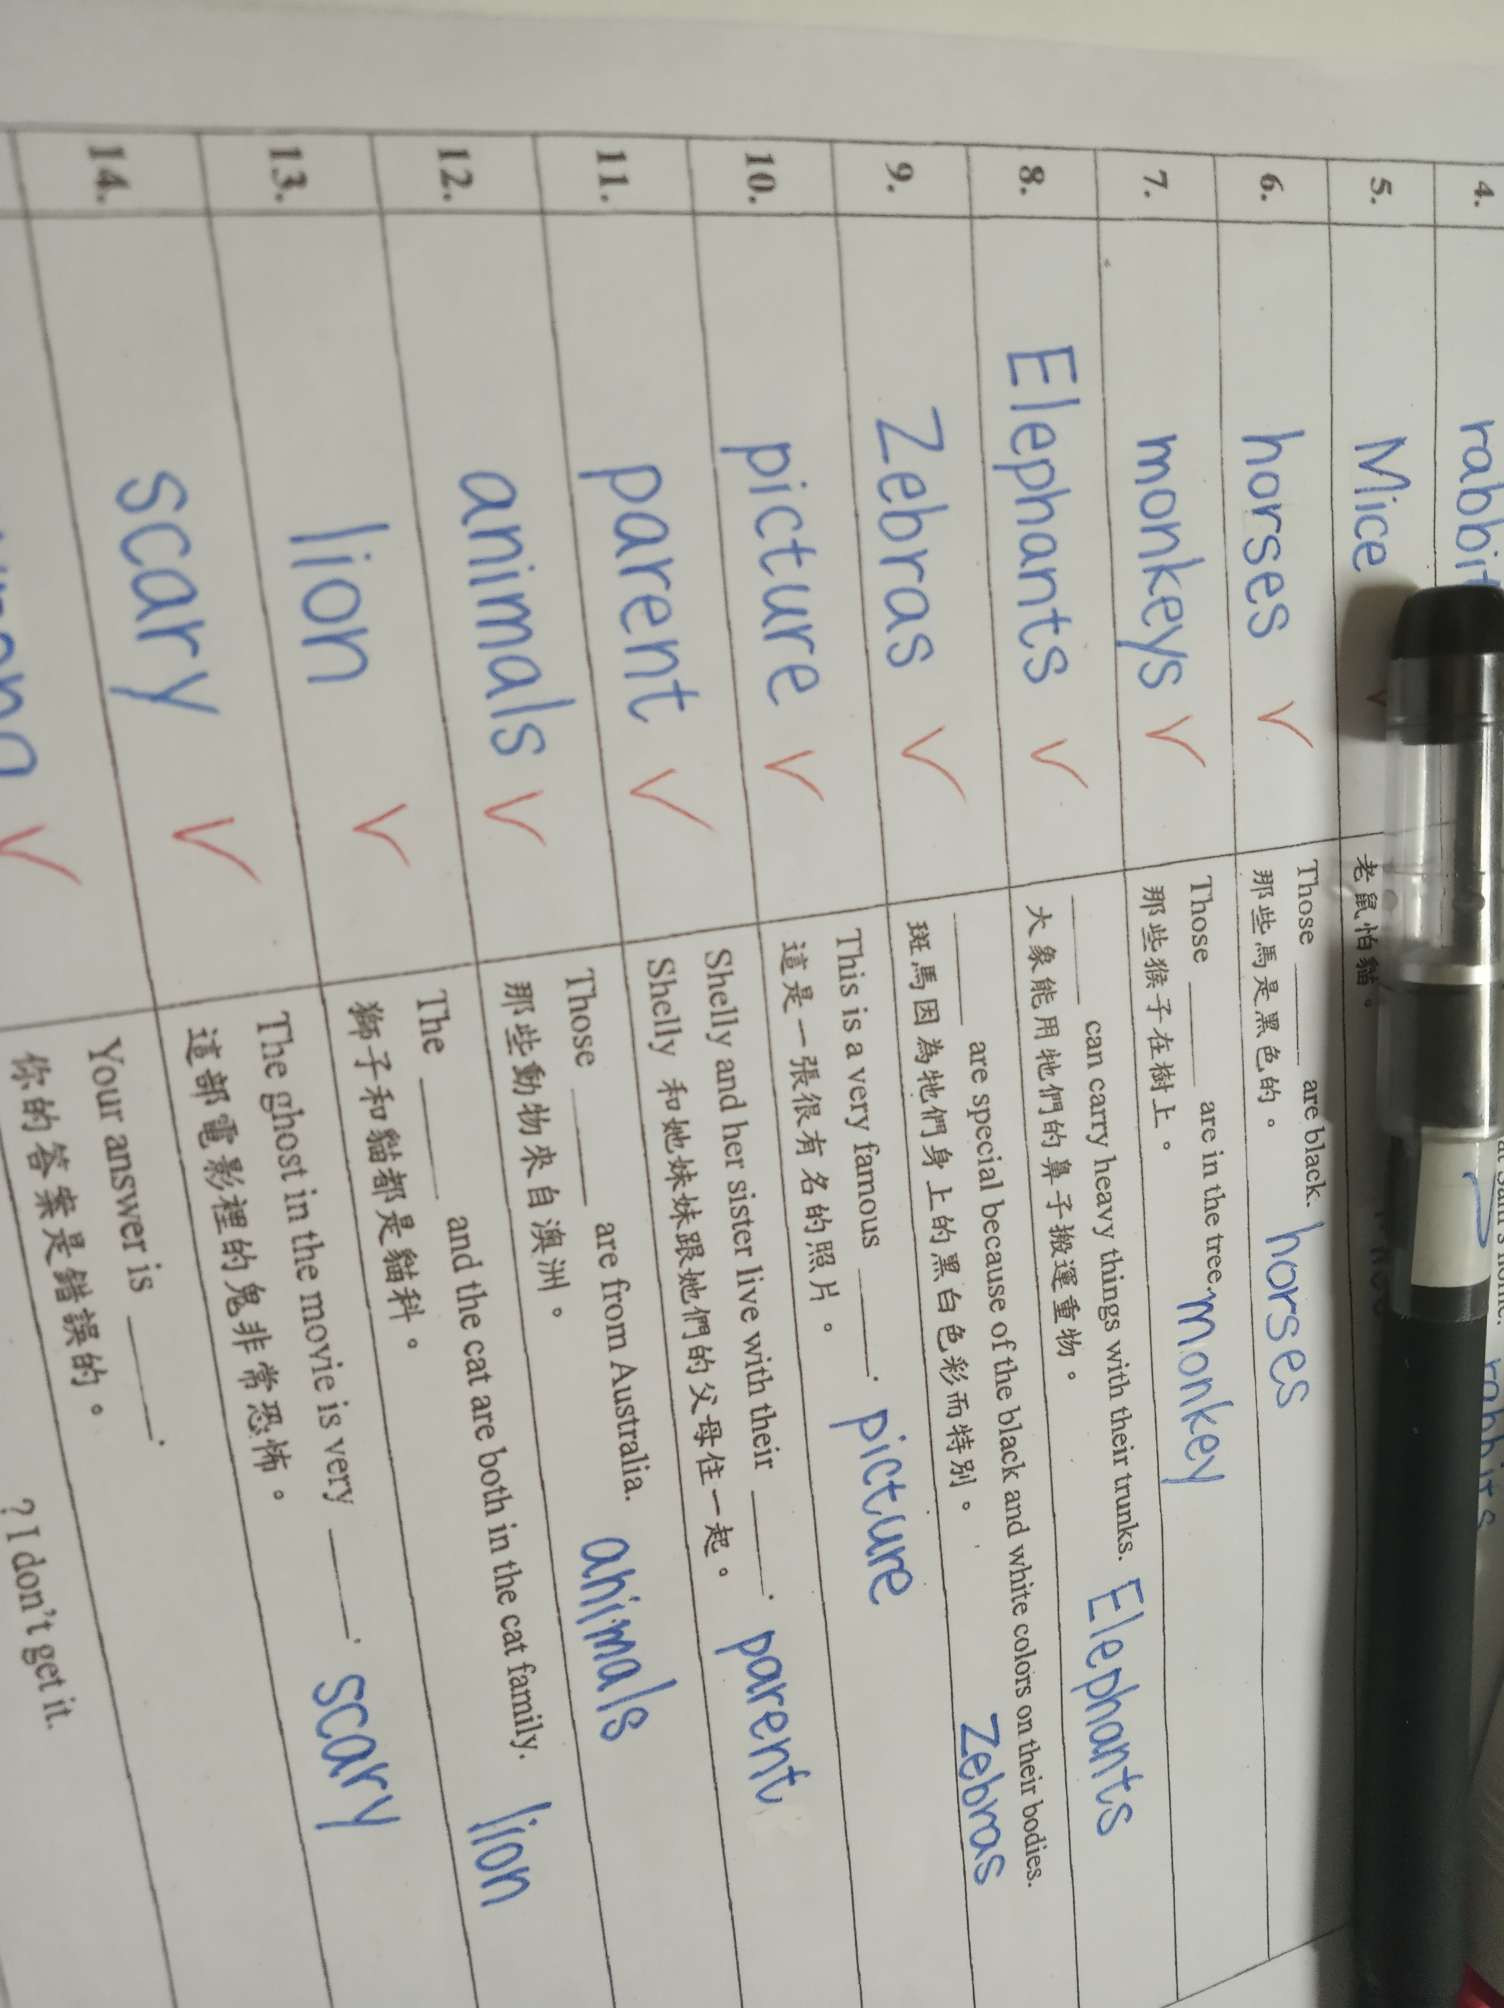 4. 
5. Mice 老鼠怕貓。
6. horses Those ______ are black. horses
那些馬是黑色的。
7. monkeys Those ______ are in the tree. monkey
那些猴子在樹上。
8. Elephants ______ can carry heavy things with their trunks. Elephants
大象能用牠們的鼻子搬運重物。
9. Zebras ______ are special because of the black and white colors on their bodies. Zebras
斑馬因為牠們身上的黑白色彩而特別。
10. picture This is a very famous ______. picture
這是一張很有名的照片。
11. parent Shelly and her sister live with their ______. parent
Shelly 和她妹妹跟她們的父母住一起。
12. animals Those ______ are from Australia. animals
那些動物來自澳洲。
13. lion The ______ and the cat are both in the cat family. lion
獅子和貓都是貓科。
14. scary The ghost in the movie is very ______. scary
這部電影裡的鬼非常恐怖。
Your answer is ______.
你的答案是錯誤的。
? I don't get it.